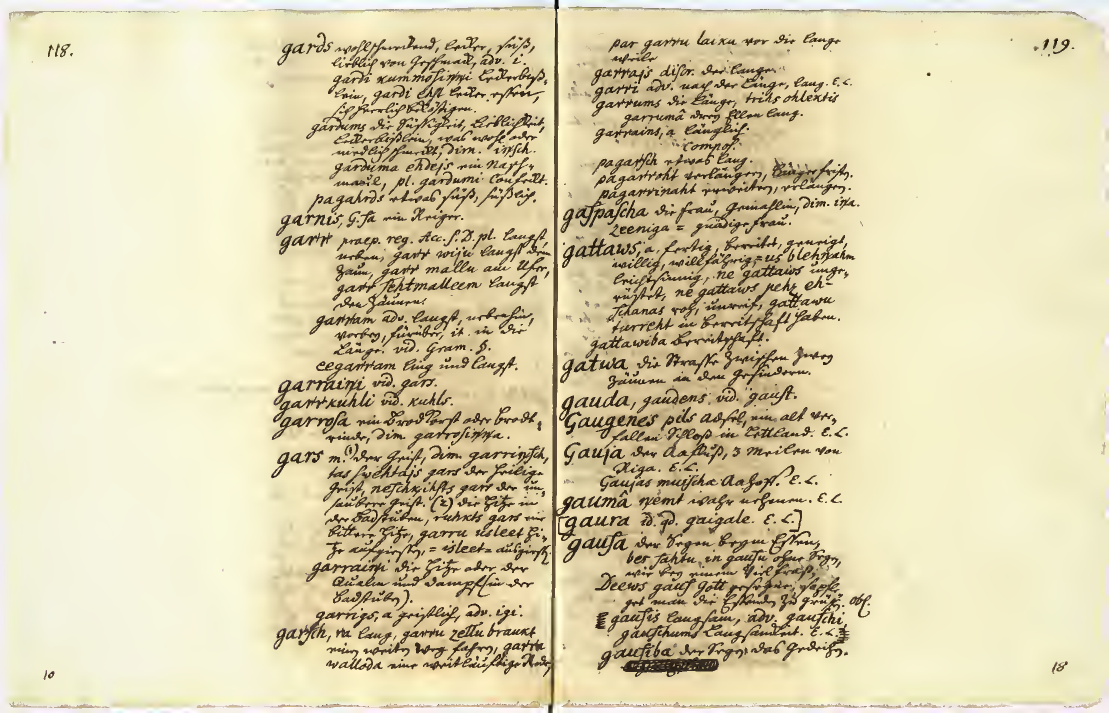 118.
gards wohlschmeckend, lecker, süß,
lieblich von Geschmack, adv. i.
gardi kummosinni Leckerbiß-
lein, gardi ehst lecker essen,
sich herrlich beköstigen.
gardums die Süßigkeit, Lieblichkeit,
Leckerbißlein, was wohl oder
niedlich schmeckt, dim. insch.
garduma ehdejs ein Nasch-
maul, pl. gardumi Confect.
pagahrds etwas süß, süßlich.
garnis G. ſa ein Reiger.
garr praep. reg. Acc. S. D. pl. langst
neben, garr wiju langst dem
Zaun, garr mallu am Ufer,
garr sehtmalleem langst
den Zäunen.
garram adv. langst, nebenhin,
vorbey, fürüber, it. in die
Länge. vid. Gram. §.
eegarram lang und langst.
garraini vid. gars.
garrkuhli vid. kuhls.
garrosa ein Brod Korst oder Brodt-
rinde, dim. garrosinna.
gars m. (1) der Geist, dim. garrinsch,
tas swehtajs gars der heilige
Geist, neschkihsts gars der un-
saubere Geist. (2) die Hitze in
der Badstuben, ruhkts gars eine
bittere Hitze, garru usleet Hi-
tze aufgiessen, = isleet = ausgiessen
garraini die Hitze oder der
Qualm und Dampf (in der
Badstuben).
garrigs, a geistlich, adv. igi.
garsch, ra lang, garru zellu braukt
einen weiten Weg fahren, garra
walloda eine weitläuftige Rede,
10
119.
par garru laiku vor die lange
weile
garrajs discr. der lange.
garri adv. nach der Länge, lang. E.L.
garrums die Länge, trihs ohlektis
garrumâ drey Ellen lang.
garrains, a länglich.
Compos.
pagarsch etwas lang.
pagarroht verlängern, länger fristen.
pagarrinaht erweitern, verlängern.
gaspascha die Frau, Gemahlin, dim. ina.
Zeeniga = gnädige Frau.
gattaws, a, fertig, bereitet, geneigt,
willig, willfährig, = us blehnahm
leichtsinnig, ne gattaws unge-
rüstet, ne gattaws pehz eh-
schanas roh, unreif, gattawu
turreht in Bereitschaft haben.
gattawiba Bereitschaft.
gatwa die Strasse zwischen zwey
Zäunen in den Gesindern.
gauda, gaudens vid. gaust.
Gaugenes pils Adsel, ein alt ver-
fallen Schloß in Lettland. E.L.
Gauja der Aafluß, 3 Meilen von
Riga. E.L.
Gaujas muischa Aahoff. E.L.
gaumâ nemt wahr nehmen. E.L
[gaura id. qd. gaigale. E.L.]
gausa der Segen beym Essen,
bes sahtu in gausu ohne Segen,
wie bey einem Vielfraß,
Deews gaus Gott gesegne, so pfle-
get man die Essenden zu grüßen. Obl.
gausis langsam, adv. gauschi
gauschums Langsamkeit. E.L.
gausiba der Segen, das Gedeihen.
18